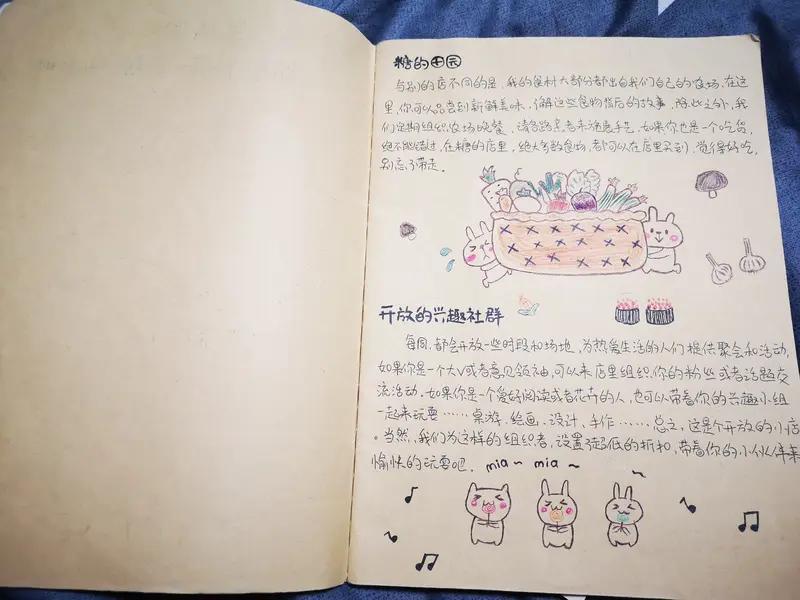 糖的田园
与别的店不同的是，我的食材大部分都出自我们自己的农场，在这
里，你可以品尝到新鲜美味，了解这些食物背后的故事，除此之外，我
们定期组织农场晚餐，请各路主者来施展手艺，如果你也是一个吃货，
绝不能错过，在糖的店里，绝大多数食物，都可以在店里买到，觉得好吃，
别忘了带走。
开放的兴趣社群
每周，都会开放一些时段和场地，为热爱生活的人们提供聚会和活动，
如果你是一个大V或者意见领袖，可以来店里组织你的粉丝或者话题交
流活动。如果你是一个爱好阅读或者花卉的人，也可以带着你的兴趣小组
一起来玩耍……桌游、绘画、设计、手作……总之，这是个开放的小店
。当然，我们为这样的组织者，设置了超低的折扣，带着你的小伙伴来
愉快的玩耍吧。mia~ mia~